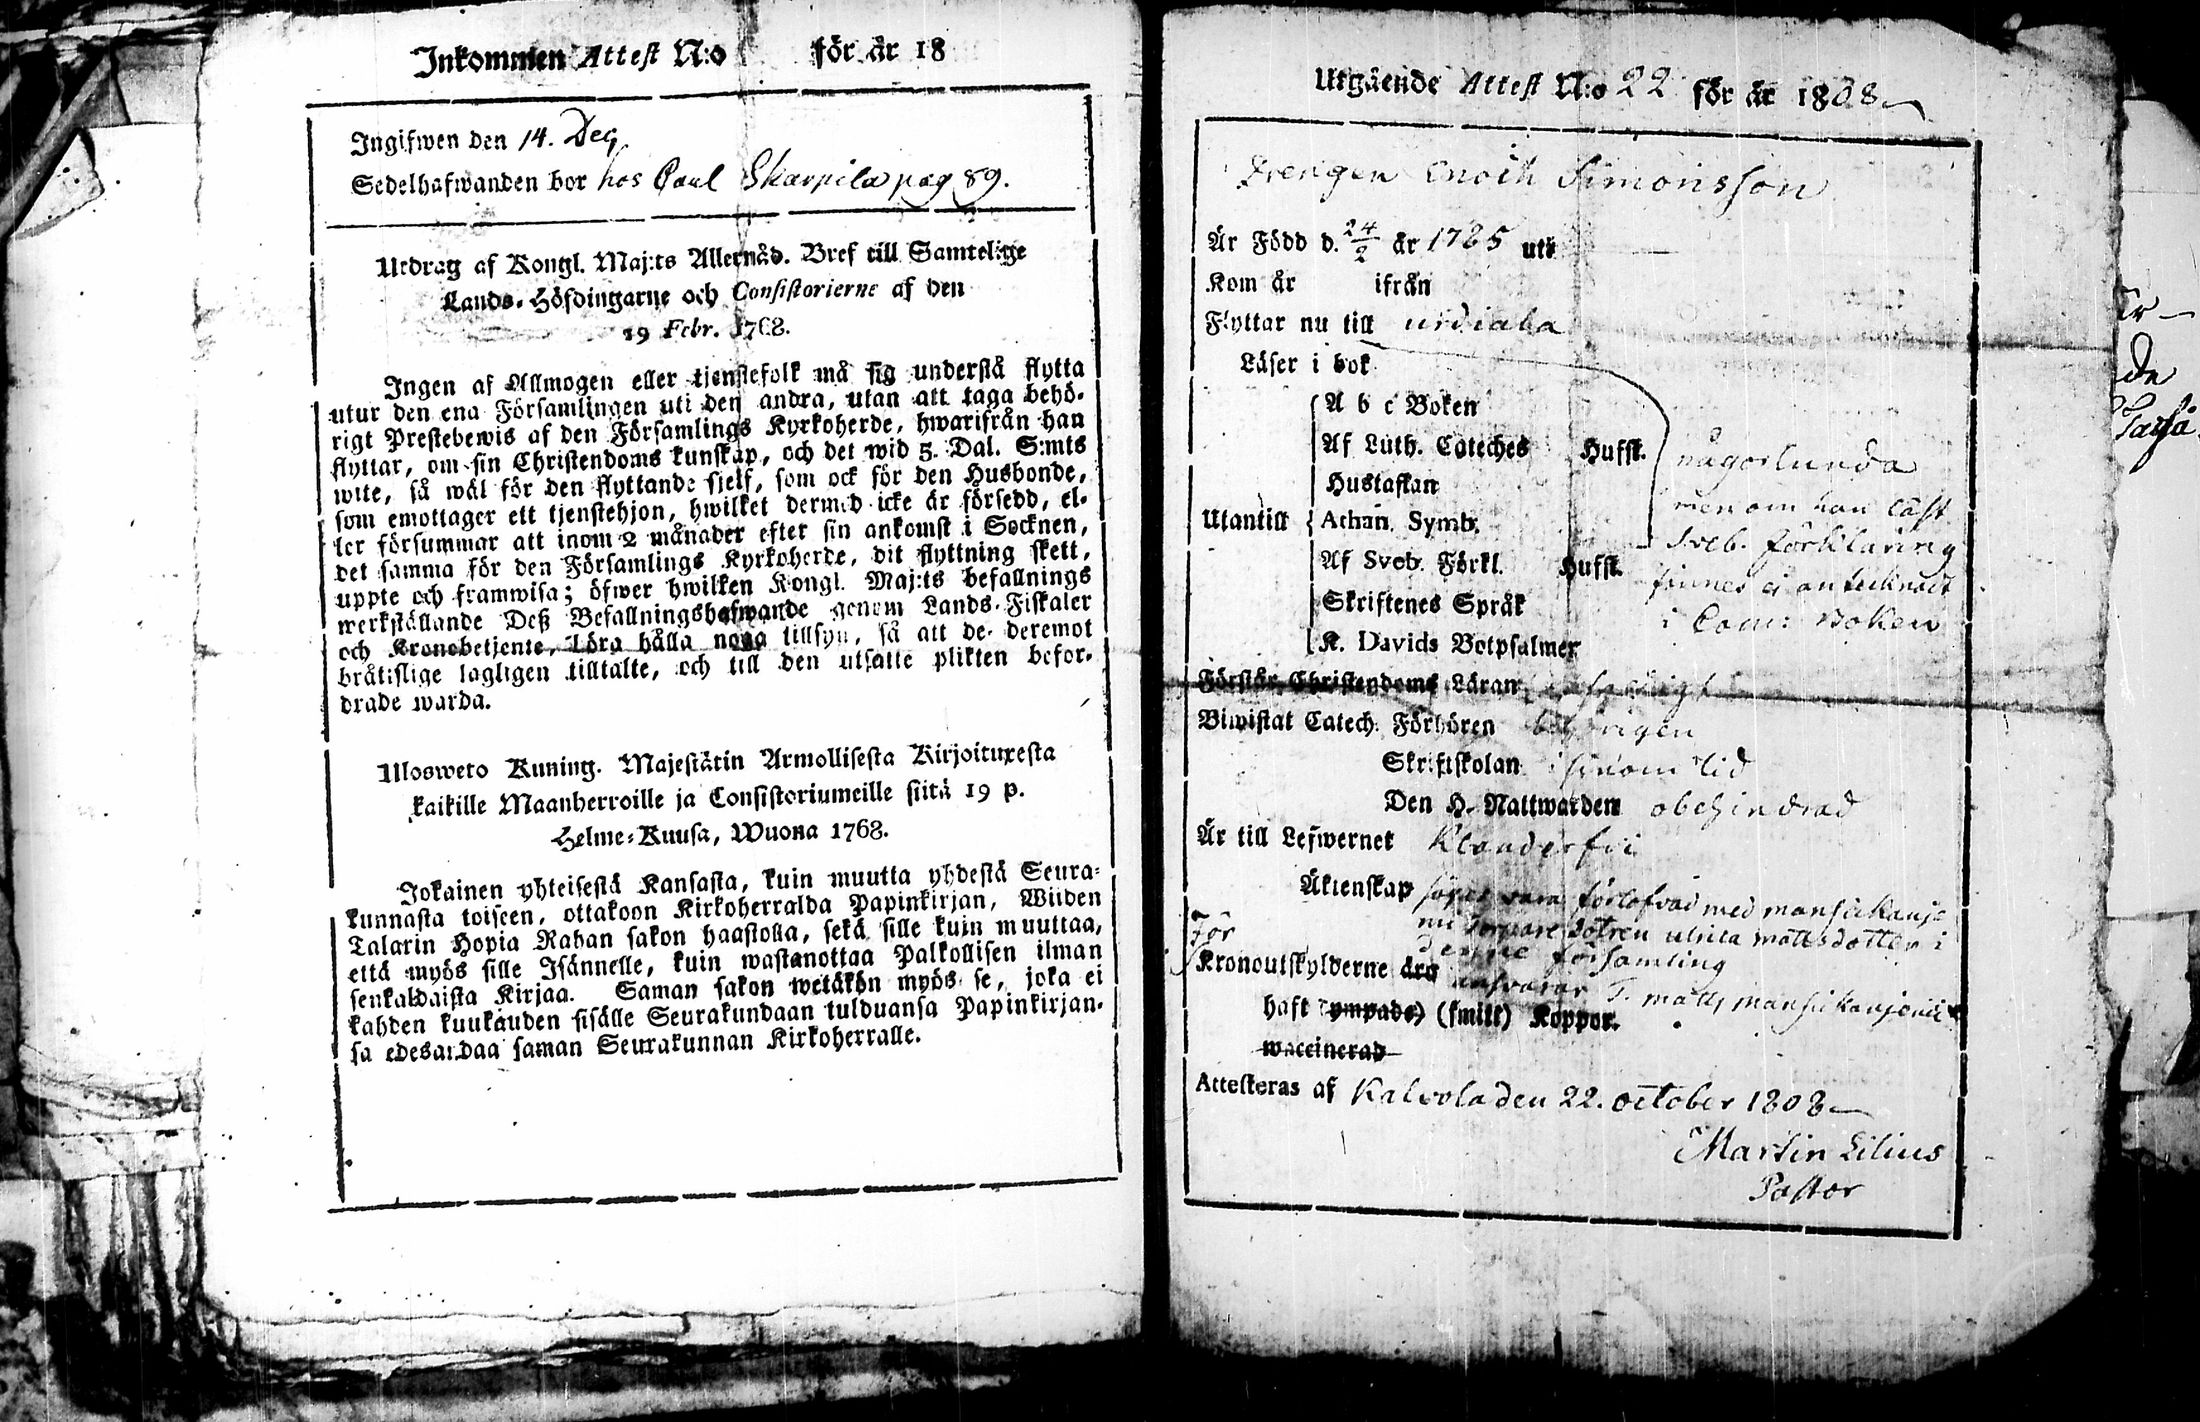 Inkommen Attest N:o för år 18
Ingifwen den 14. Dec
Sedelhafwanden bor hos Paul Skarpila pag 89.
Utdrag af Kongl. Maj:ts Allernåd. Bref till Samtelige
Lands-Höfdingarne och Consistorierne af den
19 Febr. 1768.
Ingen af Allmogen eller tjenstefolk må sig understå flytta
utur den ena Församlingen uti den andra, utan att taga behö-
rigt Prestebewis af den Församlings Kyrkoherde, hwarifrån han
flyttar, om sin Christendoms kunskap, och det wid 5. Dal. S:mts
wite, så wäl för den flyttande sjelf, som ock för den Husbonde,
som emottager ett tjenstehjon, hwilket dermed icke är försedd, el-
ler försummar att inom 2 månader efter sin ankomst i Socknen,
det samma för den Församlings Kyrkoherde, dit flyttning skett,
uppte och framwisa; öfwer hwilken Kongl. Maj:ts befallnings
werkställande Deß Befallningshafwande genom Lands-Fiskaler
och Kronobetjente, låra hålla noga tillsyn, så att de deremot
bråtislige lagligen tilltalte, och till den utsatte plikten befor-
drade warda.
Ulosweto Kuning. Majestätin Armollisesta Kirjoituxesta
kaikille Maanherroille ja Consistoriumeille siitä 19 p.
Helme-Kuusa, Wuona 1768.
Jokainen yhteisestä Kansasta, kuin muutta yhdestä Seura-
kunnasta toiseen, ottakoon Kirkoherralda Papinkirjan, Wiiden
Talarin Hopia Rahan sakon haastolla, sekä sille kuin muuttaa,
että myös sille Isännelle, kuin wastanottaa Palkollisen ilman
senkaldaista Kirjaa. Saman sakon wetäkön myös se, joka ei
kahden kuukauden sisälle Seurakundaan tulduansa Papinkirjan-
sa edesandaa saman Seurakunnan Kirkoherralle.
Utgående Attest N:o 22 för år 1808
Drengen Enoch Simonsson
Är Född d. 24/2 år 1785 uti
Kom år ifrån
Flyttar nu till urdiala
Läser i bok
A b c Boken
Af Luth. Cateches Husst. någorlunda
Hustaflan men om han läst
Utantill Athan. Symb. Sveb. förklaring
Af Sveb. Förkl. Husst. finnes ei antecknadt
Skriftenes Språk i Com: Boken
K. Davids Botpsalmer
Förstår Christendoms Läran
Biwistat Catech. Förhören behörigen
Skriftskolan i sinom tid
Den H. Nattwarden obehindrad
Är till Lefwernet Klanderfri
Äktenskap säges vara förlofvad med
dotren ulrica mattsdotter i
För denne församling
Kronoutskylderne ansvarar
haft ympade) (smitt) Koppor.
waccinerad
Attesteras af Kalvola den 22. october 1808
Martin Lilius
Pastor